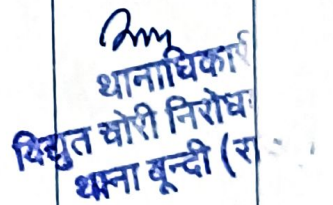 थानाधिकार
विद्युत चोरी निरोध
थाना बून्दी (रा